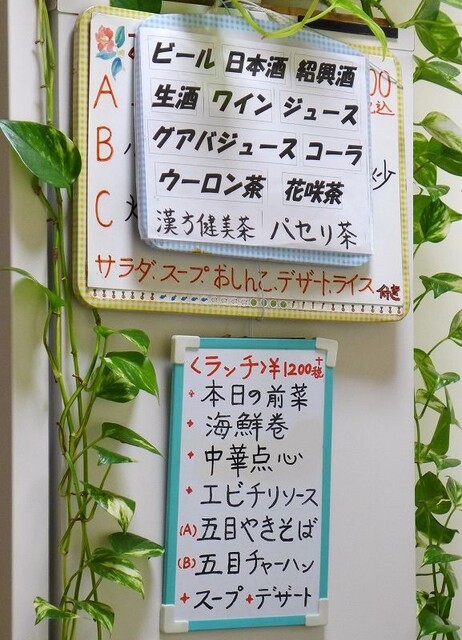 ビール 日本酒 紹興酒
生酒 ワイン ジュース
グアバジュース コーラ
ウーロン茶 花咲茶
漢方健美茶 パセリ茶
00
税込
A
B
炒
C
サラダ.スープ.おしんこ.デザート.ライス付き
<ランチ>¥1200+税
・本日の前菜
・海鮮巻
・中華点心
・エビチリソース
(A)五目やきそば
(B)五目チャーハン
+スープ+デザート